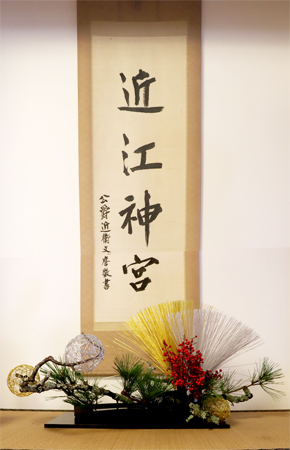 近江神宮
公爵近衞文麿敬書